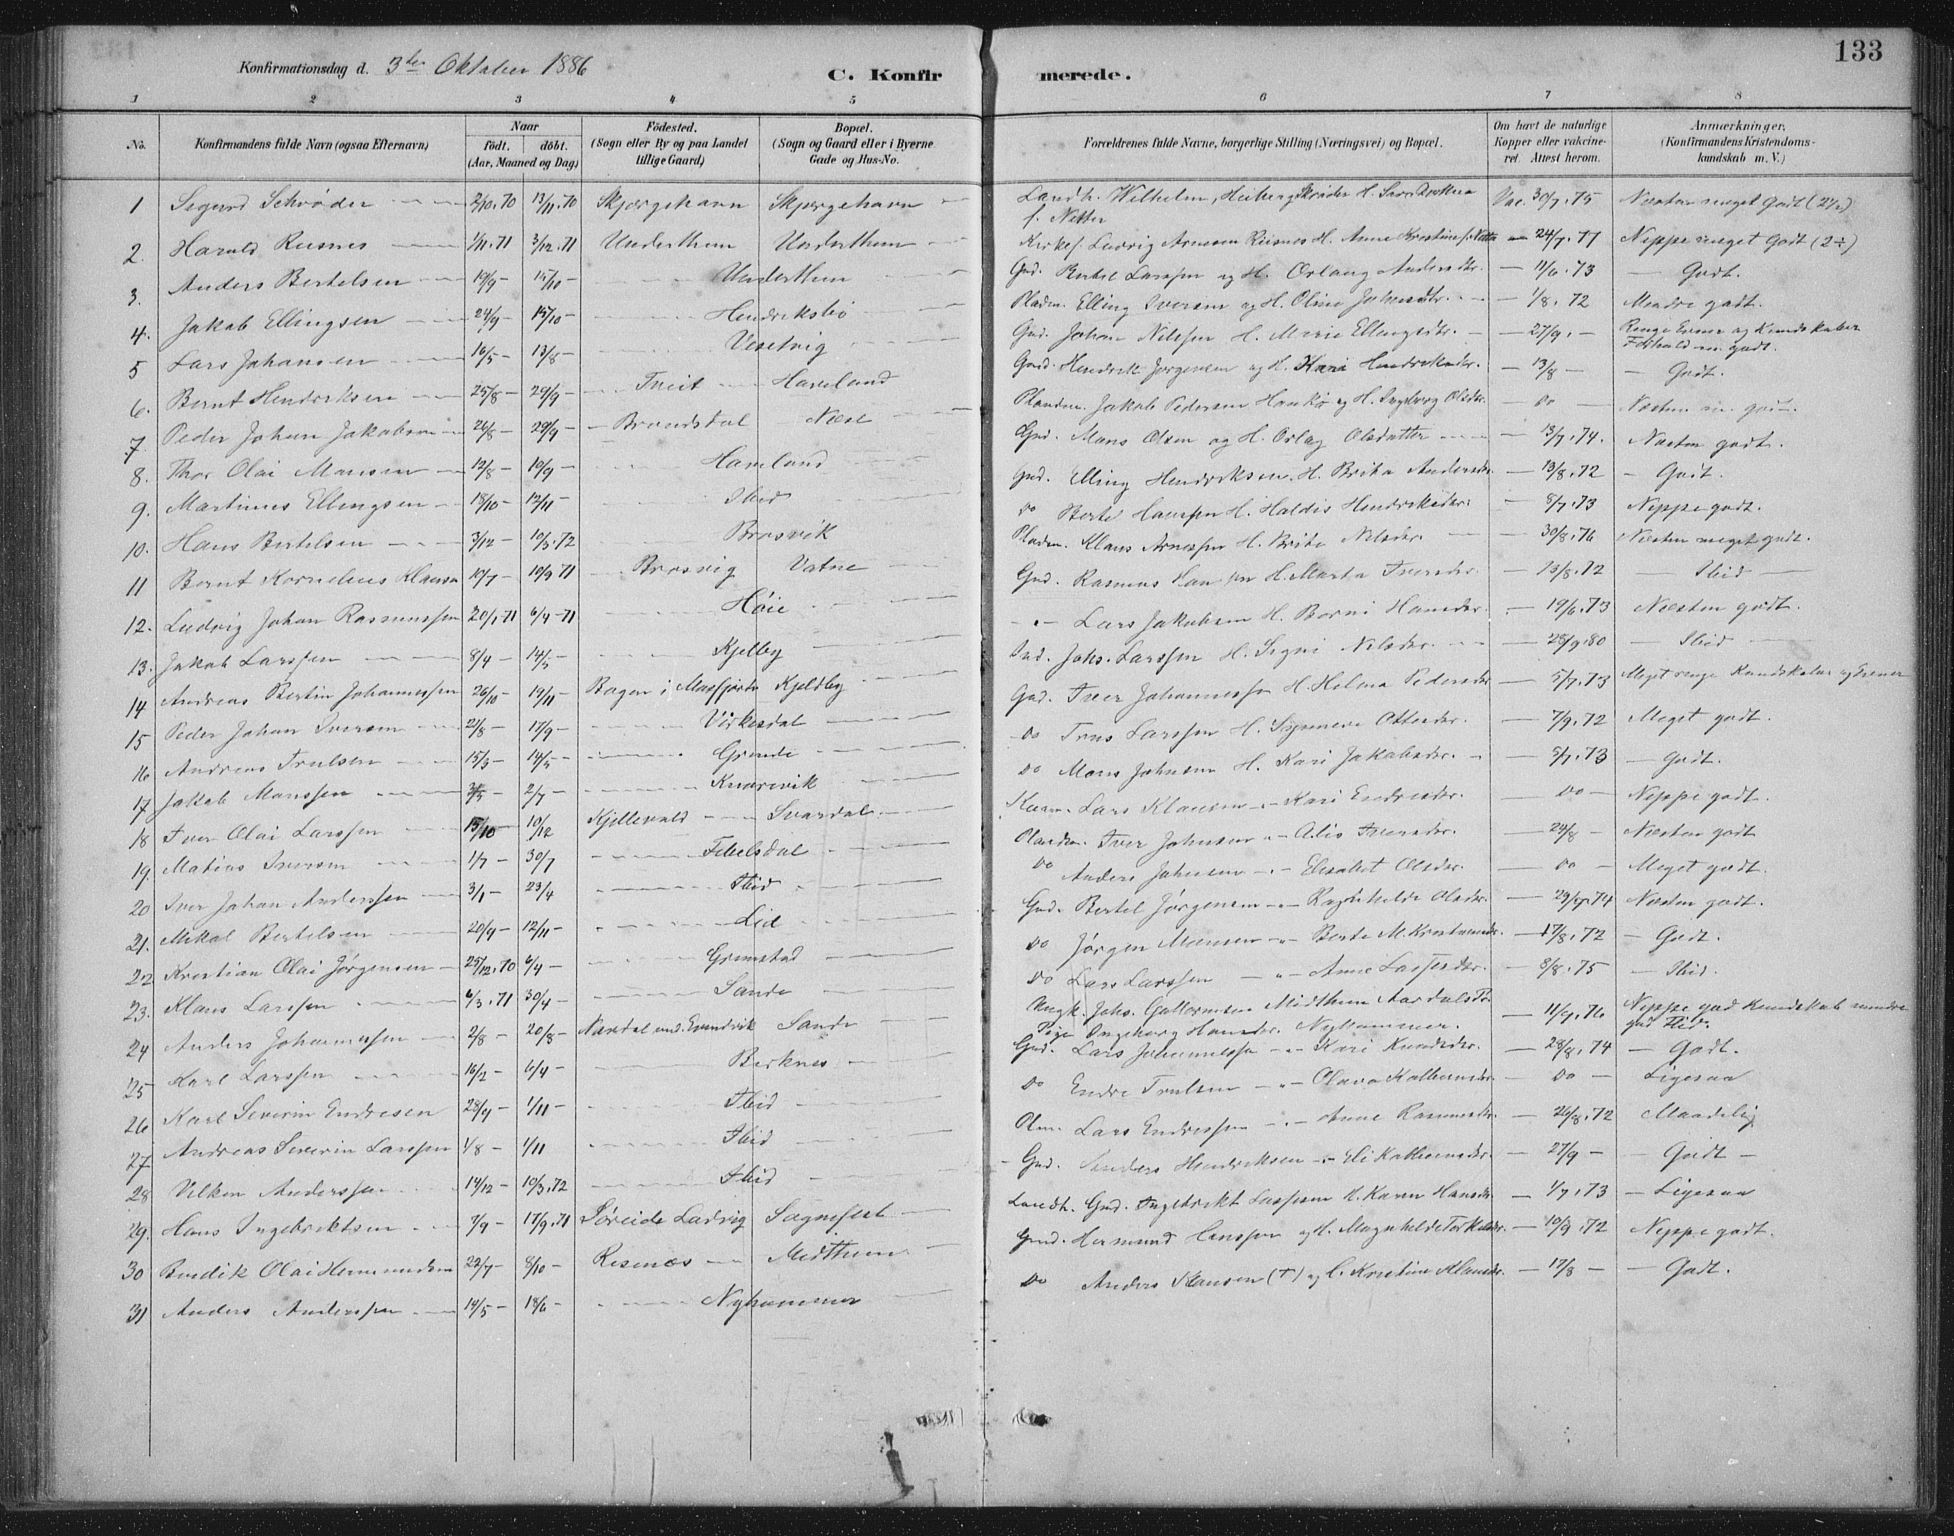 133
Konfirmationsdag d. 3die Oktober 1886
C. Konfirmerede.
1 2 3 4 5 6 7 8
No. Konfirmandens fulde Navn (ogsaa Efternavn) Naar født. døbt. (Aar, Maaned og Dag) Födested. (Sogn eller By og paa Landet tillige Gaard) Bopæl. (Sogn og Gaard eller i Byerne Gade og Hus-No. Forældrenes fulde Navne, borgerlige Stilling (Næringsvei) og Bopæl. Om havt de naturlige Kopper eller vakcineret. Attest herom. Anmærkninger. (Konfirmandens Kristendomskundskab m. V.)
1 Sigurd Schrøder 2/10.70 13/11.70 Skjærgehavn Skjærgehavn Landh. Wilhelm Heiberg H. Vac. 30/7.75 Næsten meget godt (2½)
2. Harald Risnes 1/11.71 3/12.71 Underthun Underthun Kirkes. Ludvig Arnesen Risnes H. Anne Kristine f. — 24/7.77 Neppe meget godt (2÷)
3. Anders Bertelsen 19/9 — 15/10 — Underthun Gmd. Bertel Larssen og H. Orlaug Andersdtr. — 11/6.73 — Godt.
4. Jakob Ellingsen 24/9 — 15/10 — Hendriksbø Pladsm. Elling Iversen og H. Oline Johansdtr. — 1/8.72 Mindre godt.
5 Lars Johansen 16/5 — 13/8 — Gmd. Johan Nilssen H. Marie Ellingsdtr. — 27/9. — Ringe Evner og Kundskaber Forhold m. godt.
6. Bernt Hendriksen 25/8 — 29/9 — Tveit Haveland Gmd. Hendrik Jørgensen og H. Kari Hendriksdtr. — 13/8 — Godt.
7. Peder Johan Jakobsen 26/8 — 29/9 — Brandsdal Næse Pladsm. Jakob Pedersen og H. Ingeborg Olsdtr. — do — Næsten m. godt.
8. Thor Olai Mansen 12/8 — 10/9 — Haveland Gmd. Mans Olsen og H. Orlog Olsdatter — 13/7.74. Næsten godt.
9. Martinus Ellingsen 18/10 — 12/11 — Ibid Gmd. Elling Hendriksen. H. Brita Andersdtr. — 13/8.72 — Godt.
10. Hans Bertelsen 3/12 — 10/3.72 Brosvik do Bertel Hanssen H. Haldis Hendriksdtr. — 8/7.73 Neppe godt.
11 Bernt Kornelius Klausen 10/7 — 10/9.71 Brosvig Vatne Pladsm. Klaus Arnessen H. Brite Nilsdtr. — 30/8.76 Næsten meget godt.
12. Ludvig Johan Rasmussen 20/1.71 6/4-71 Høie Gmd. Rasmus H. Marta Iversdtr. — 13/8.72 — Ibid —
13. Jakob Larssen 8/4 — 14/5 — Kjelby Lars Jakobsen H. Borni Hansdtr. — 19/6.73 Næsten godt.
14 Andreas Bertin Johannessen 26/10 — 19/11 — Bogen i Masfjorden Kjeldby Ind. Johs. Larssen H. Signi Nilsdtr. — 28/9.80 — Ibid
15 Peder Johan Iversen 2/8 — 17/9 — Virkesdal Gmd. Iver Johannessen H. Helena Pedersdtr — 5/7.73 Meget ringe Kundskaber og Evner
16 Andreas Trulsen 15/3 — 14/5 — Grinde do Truls Larssen H. Synneve Ottersdtr. — 7/9.72 Meget godt.
17. Jakob Manssen — 2/7 — Knarvik do Mans Johnsen H. Kari Jakobsdtr. — 5/7.73 — Godt.
18 Iver Olai Larssen 15/10 — 10/12 Kjellevald Svardal Lars Klausen Kari Endresdtr. — do — Neppe godt.
19. Matias Iversen 1/7 — 30/7 Pladsm. Iver Johnsen Alis Iversdtr. — 24/8 — Næsten godt
20 Iver Johan Anderssen 3/1 — 23/4 Ibid do Anders Johnsen Elisabet Olsdtr. — do — Meget godt.
21. Mikal Bertelsen 20/9 — 12/11 — Lid Gmd. Bertel Jørgensen Ragnhilde Olsdtr. — 29/9.74 Næsten godt.
22 Kristian Olai Jørgensen 25/12.70 6/4 — Grimstad do Jørgen Mansen Berte M. — 17/8.72 — Godt.
23. Klaus Larssen 6/3.71 30/4 — Sande do Lars Larssen Anne Lassesdtr. — 8/8.75 — Ibid.
24 Anders Johannessen 2/8 — 20/8 — Nordal Sande Ungk. Johs. Guttormsen Midthun Pige Ingeborg Hansdtr. Nyhammer. — 11/9.76 Neppe god Kundskab mindre god Flid.
25 Karl Larssen 16/2 — 6/4 — Birknes Gmd. Lars Johannessen Kari Knudsdtr. — 28/8.74 — Godt.
26 Karl Severin Endresen 28/9 — 1/11 — Ibid do Endre Trulsen Olava — do — Ligesaa
27 Andreas Severin Larssen 1/8 — 1/11 Ibid Lars Endressen Anne Rasmusdtr. — 26/8.72 Maadelig
28 Vilken Anderssen 14/12 — 10/3.72 Ibid Gmd. Anders Hendriksen Eli — 27/9 — Godt —
29. Hans Ingebriktsen 7/9 — 17/9.71 Søreide Ladvig Sognefest Landh. Gmd. Ingebrikt Lassesen H. Karen Hansdtr. — 1/7.73 — Ligesaa
30 Bendik Olai Hermundsen 22/7 — 8/10 — Risenæs Midthun Gmd. Hermund Hanssen og H. Magnhilde Torkelsdtr — 10/9.72 Neppe godt.
31 Anders Anderssen 14/5 — 18/6 — Nyhammer do Anders Klausen (†) og H. Kristine Klausdtr. — 17/8 — Godt.